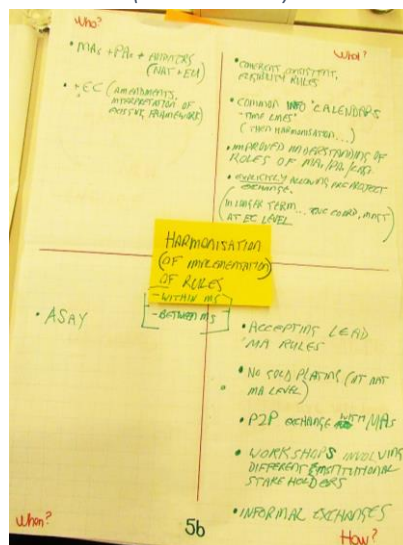 Who?
• MAs + PAs + AUDITORS
(NAT + EU)
• + EC (AMENDMENTS,
INTERPRETATION OF
EXISTING FRAMEWORK)
What?
• COHERENT, CONSISTENT,
ELIGIBILITY RULES
• COMMON INFO "CALENDARS
- TIME LINES"
(THEN HARMONISATION...)
• IMPROVED UNDERSTANDING OF
ROLES OF MAs/PAs/
• EXPLICITLY ALLOWING
EXCHANGE.
(IN LONGER TERM... COORD. MGMT
AT EC LEVEL)
HARMONISATION
(OF IMPLEMENTATION)
OF RULES
- WITHIN MS
- BETWEEN MS
• ASAY
When?
• ACCEPTING LEAD
MA RULES
• NO GOLD PLATING (AT NAT
MA LEVEL)
• P2P EXCHANGE WITH MAs
• WORKSHOPS INVOLVING
DIFFERENT INSTITUTIONAL
STAKEHOLDERS
• INFORMAL EXCHANGES
How?
5b